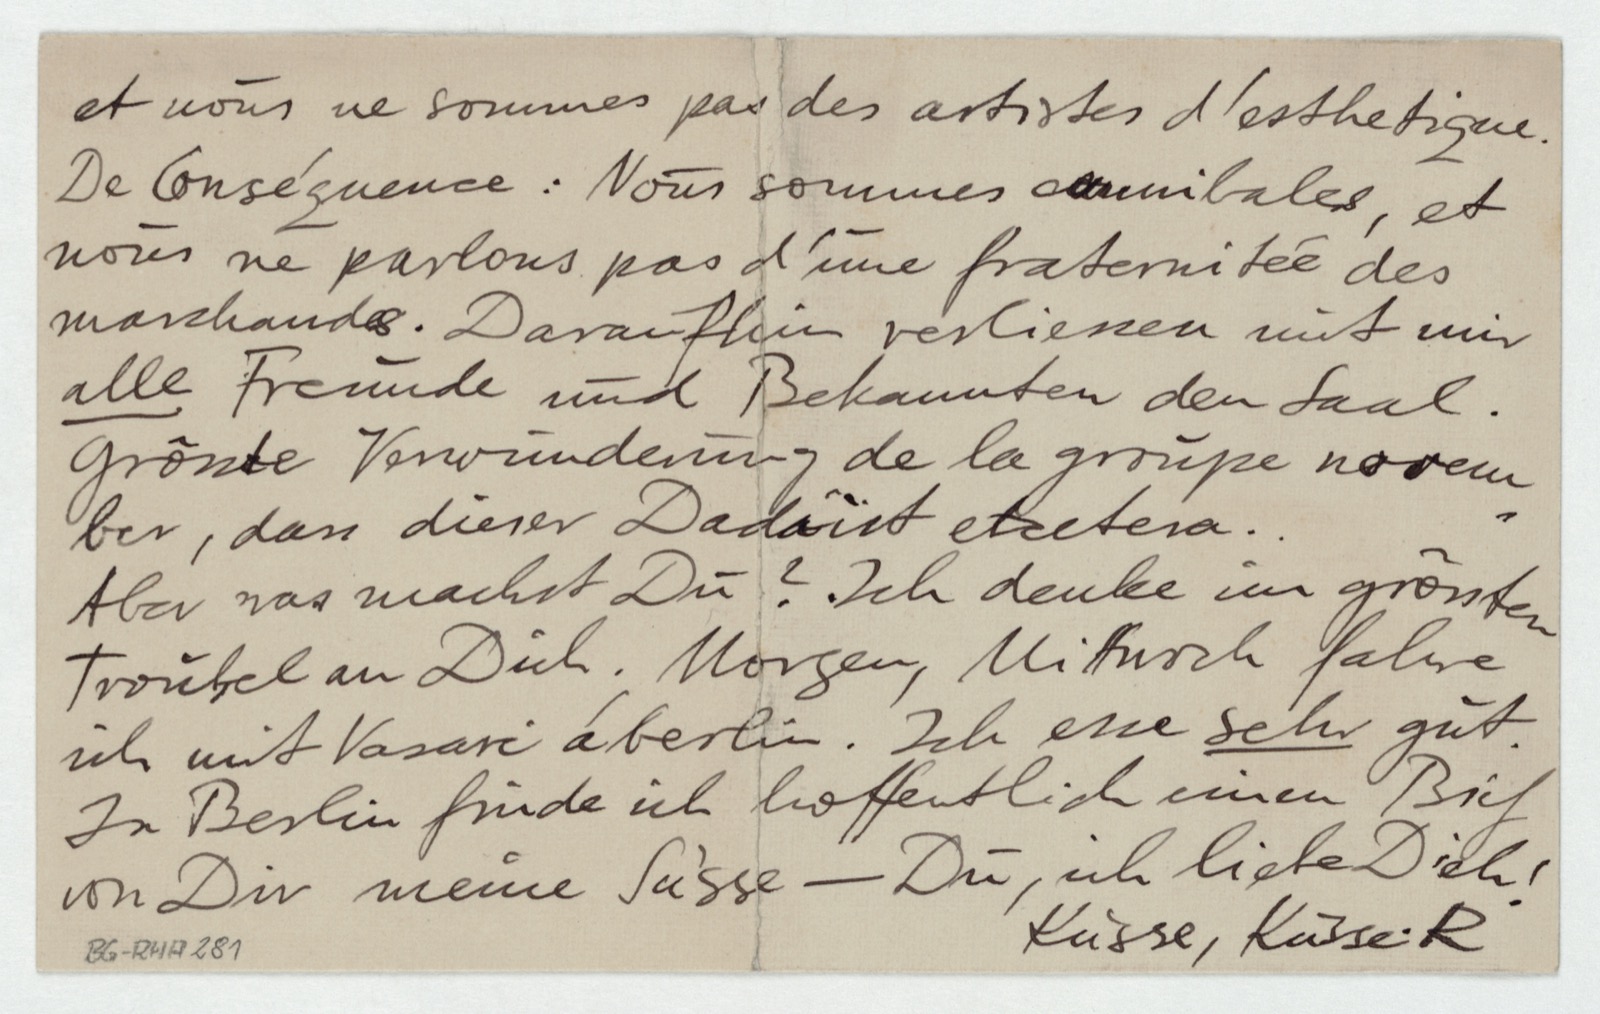 et nous ne sommes pas des artistes d'esthetique.
De Conséquence : Nous sommes cannibales, et
nous ne parlons pas d'une fraternitée des
marchands. Daraufhin verliessen mit mir
alle Freunde und Bekannten den Saal.
Grösste Verwunderung de la groupe novem
ber, dass dieser Dadaïst etcetera..
Aber was machst Du? Ich denke im grössten
Troubel an Dich. Morgen, Mittwoch fahre
ich mit Vasari á berlin. Ich esse sehr gut.
In Berlin finde ich hoffentlich einen Brief
von Dir meine Süsse — Du, ich liebe Dich!
Küsse, Küsse. R
BG-RHA 281